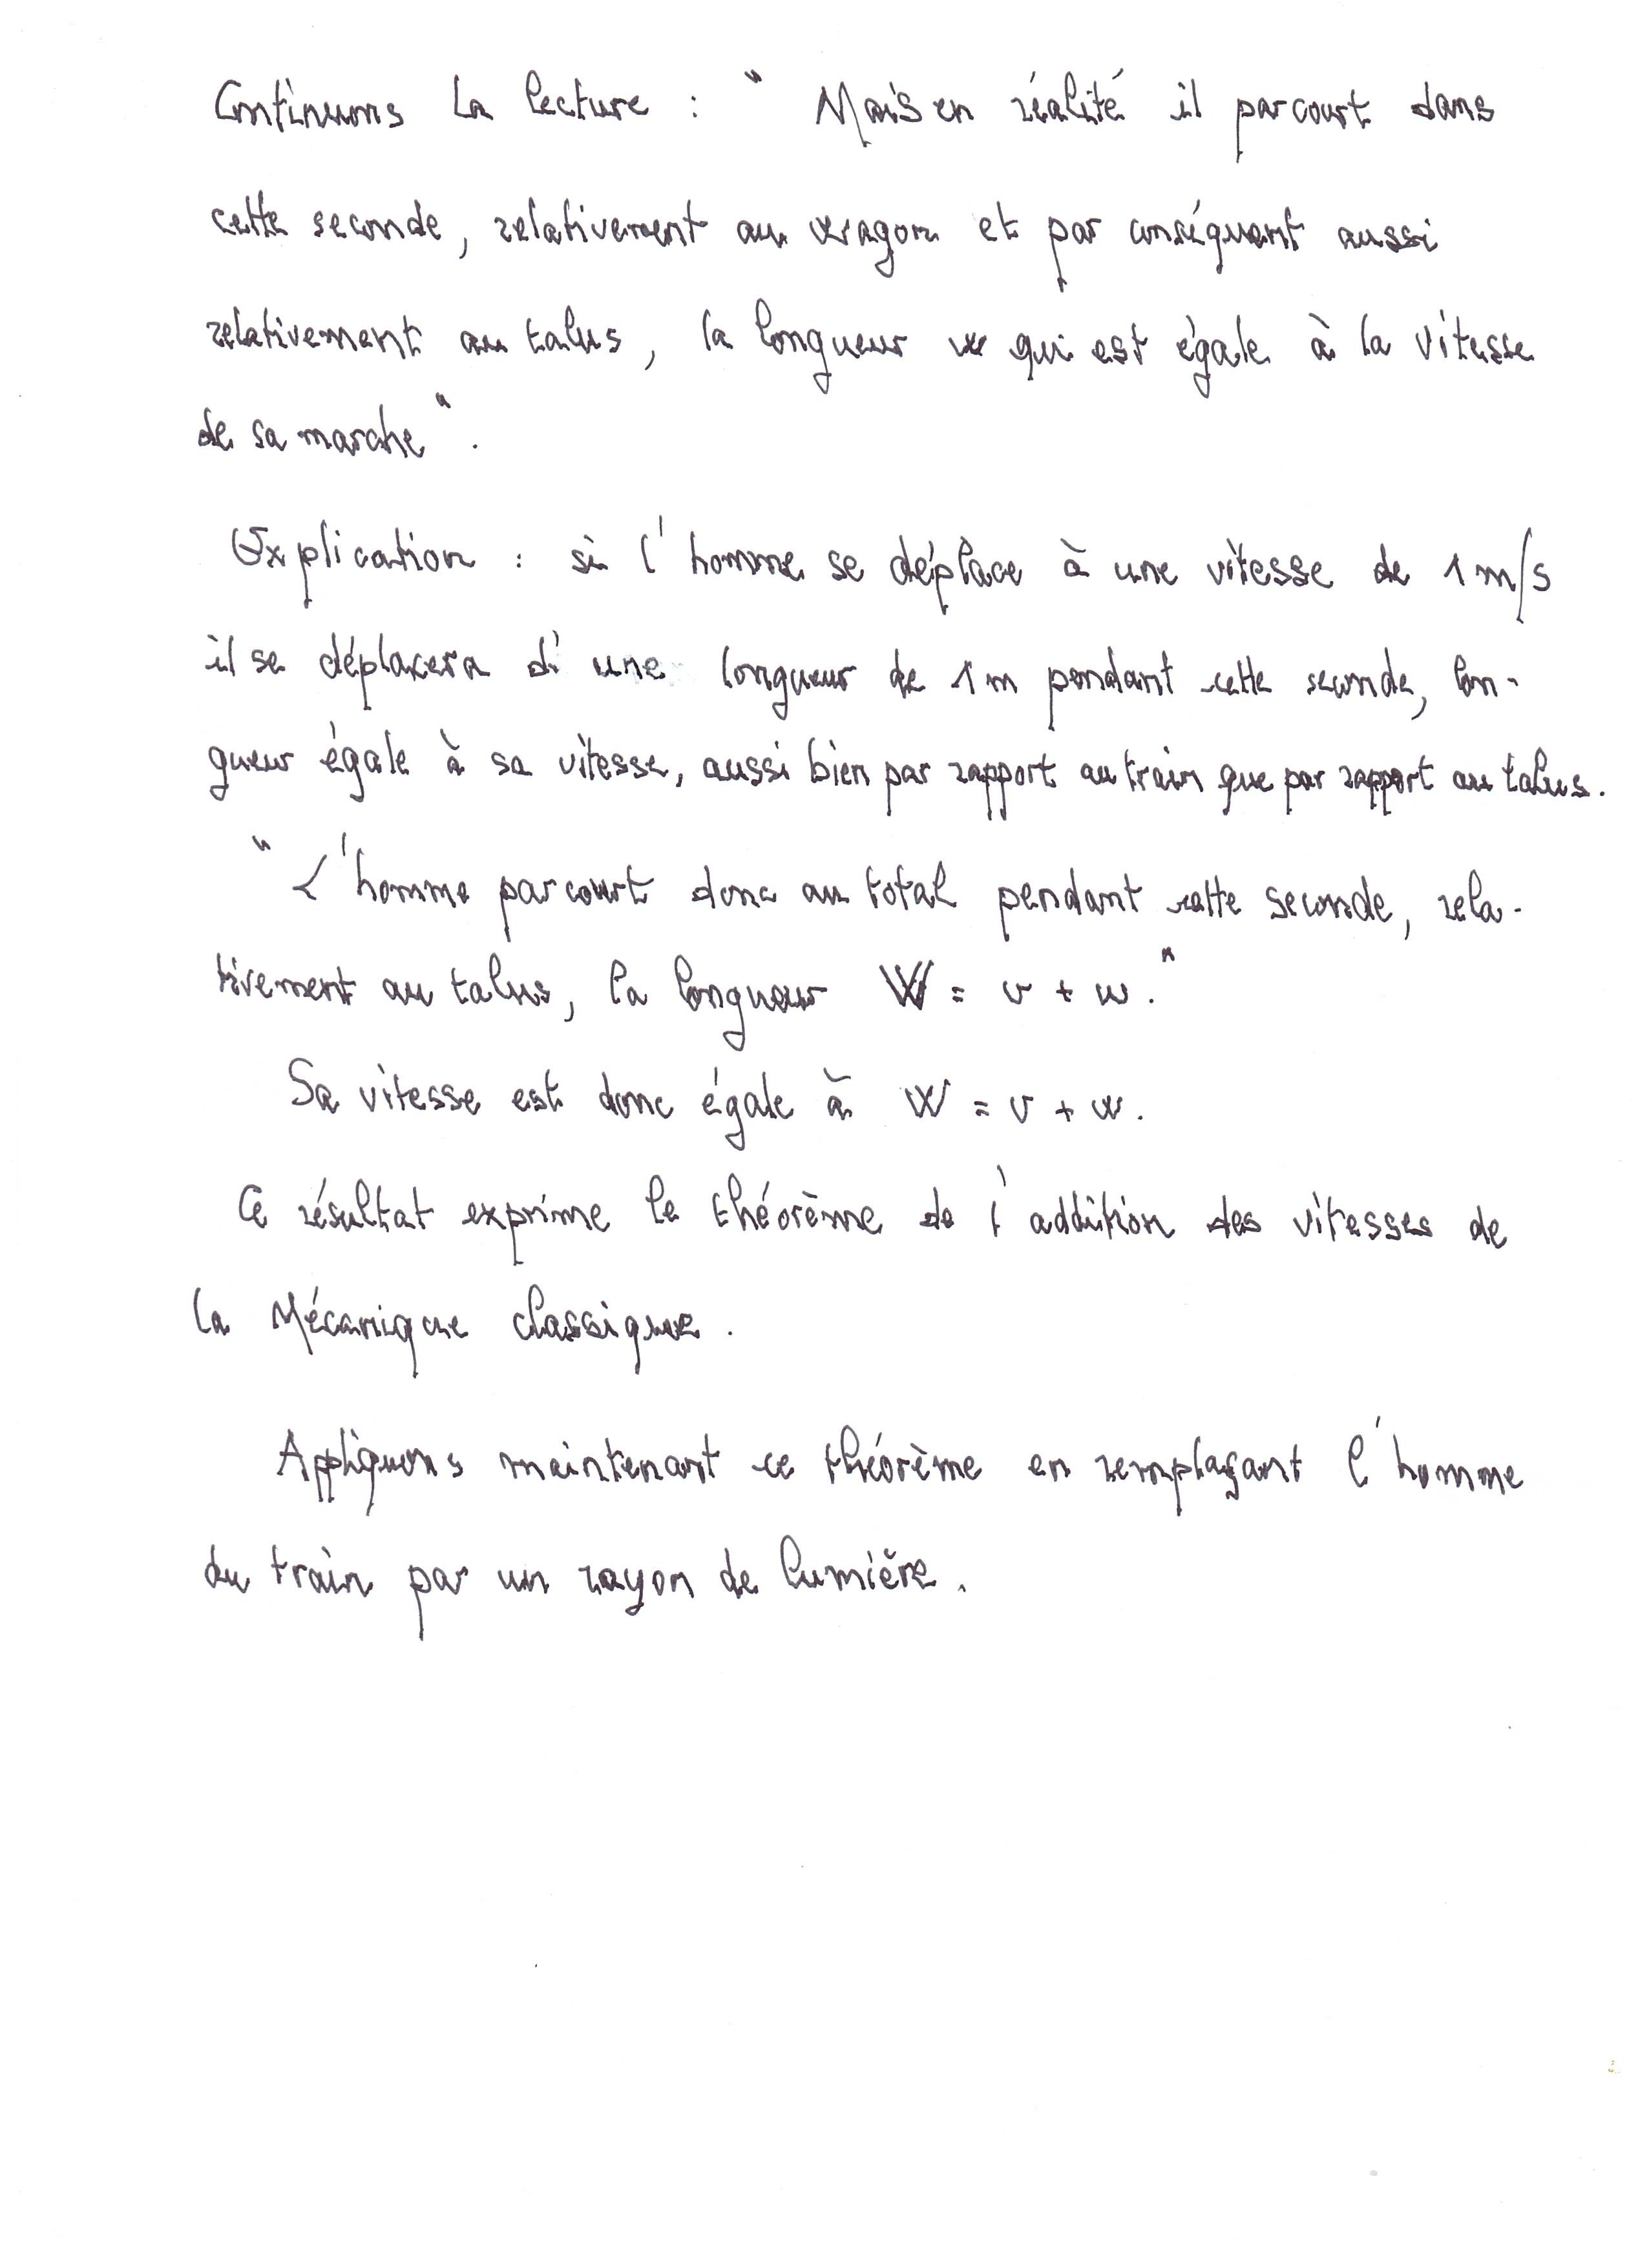 Continuons la lecture : " Mais en réalité il parcourt dans
cette seconde, relativement au wagon et par conséquent aussi
relativement au talus, la longueur w qui est égale à la vitesse
de sa marche ".
Explication : si l'homme se déplace à une vitesse de 1 m/s
il se déplacera d'une longueur de 1 m pendant cette seconde, lon-
gueur égale à sa vitesse, aussi bien par rapport au train que par rapport au talus.
" L'homme parcourt donc au total pendant cette seconde, rela-
tivement au talus, la longueur W = v + w . "
Sa vitesse est donc égale à W = v + w .
Ce résultat exprime le théorème de l'addition des vitesses de
la Mécanique classique .
Appliquons maintenant ce théorème en remplaçant l'homme
du train par un rayon de lumière .